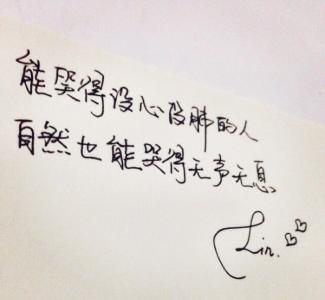 能哭得没心没肺的人
自然也能哭得无声无息。
Lin.